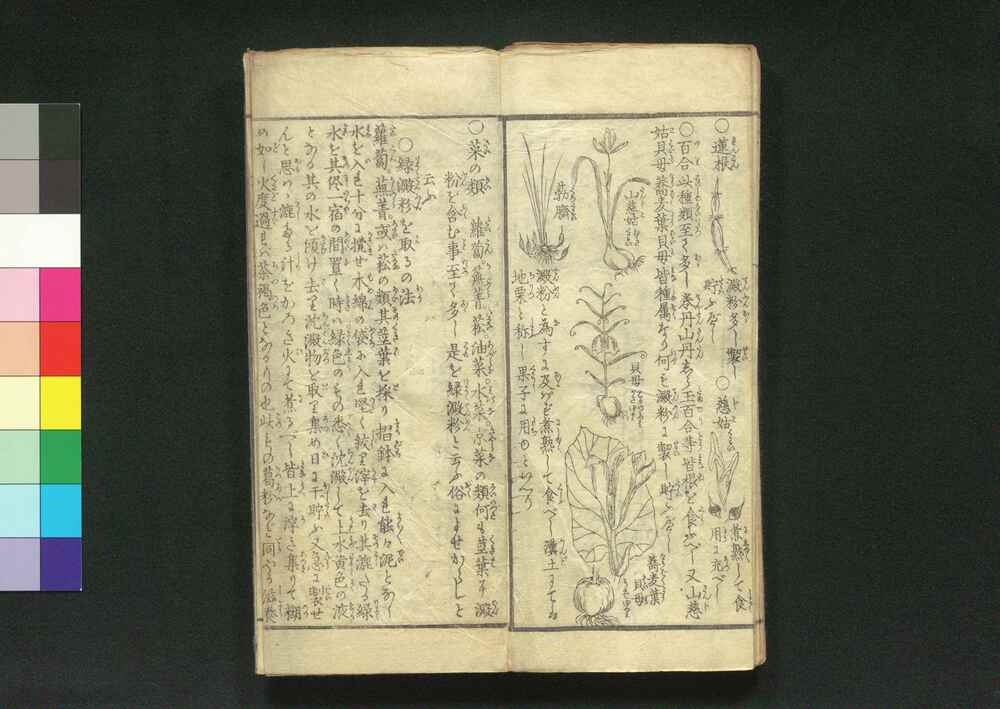 ○蓮根 澱粉多し製し貯ふべし
○慈姑 煮熟して食用に充べし
○百合 此種類至て多し巻丹山丹 玉百合等皆根を食ふべし又山慈
姑貝母蕎麦葉貝母皆種属なり何も澱粉に製し貯ふべし
山慈姑
貝母
蕎麦葉貝母
葧臍
澱粉と為すに及ばず煮熟して食べし 漢土にては
地栗と称し果子に用ゆといへり
○菜の類 蘿蔔蕪菁菘油菜水菜京菜の類何も茎葉に澱
粉を含む事至て多し是を緑澱粉と云ふ俗に と
云ふ
○緑澱粉を取るの法
蘿蔔蕪菁或は菘の類其茎葉を採り擂鉢に入れ能々泥となし
水を入れ十分に攪せ木綿の袋に入れ堅く絞り滓を去り其漉たる緑
水を其侭一宿の間置く時は緑色のもの悉く沈澱して上水黄色の液
となる其の水を傾け去り沈澱物を取り集め日に干貯ふ又急に製せ
んと思はゞ漉たる計をかろき火にて煮るべし皆上に浮き集りて糊
の如し火度過れば茶褐色となるもの也此もの葛粉などと同やう滋養